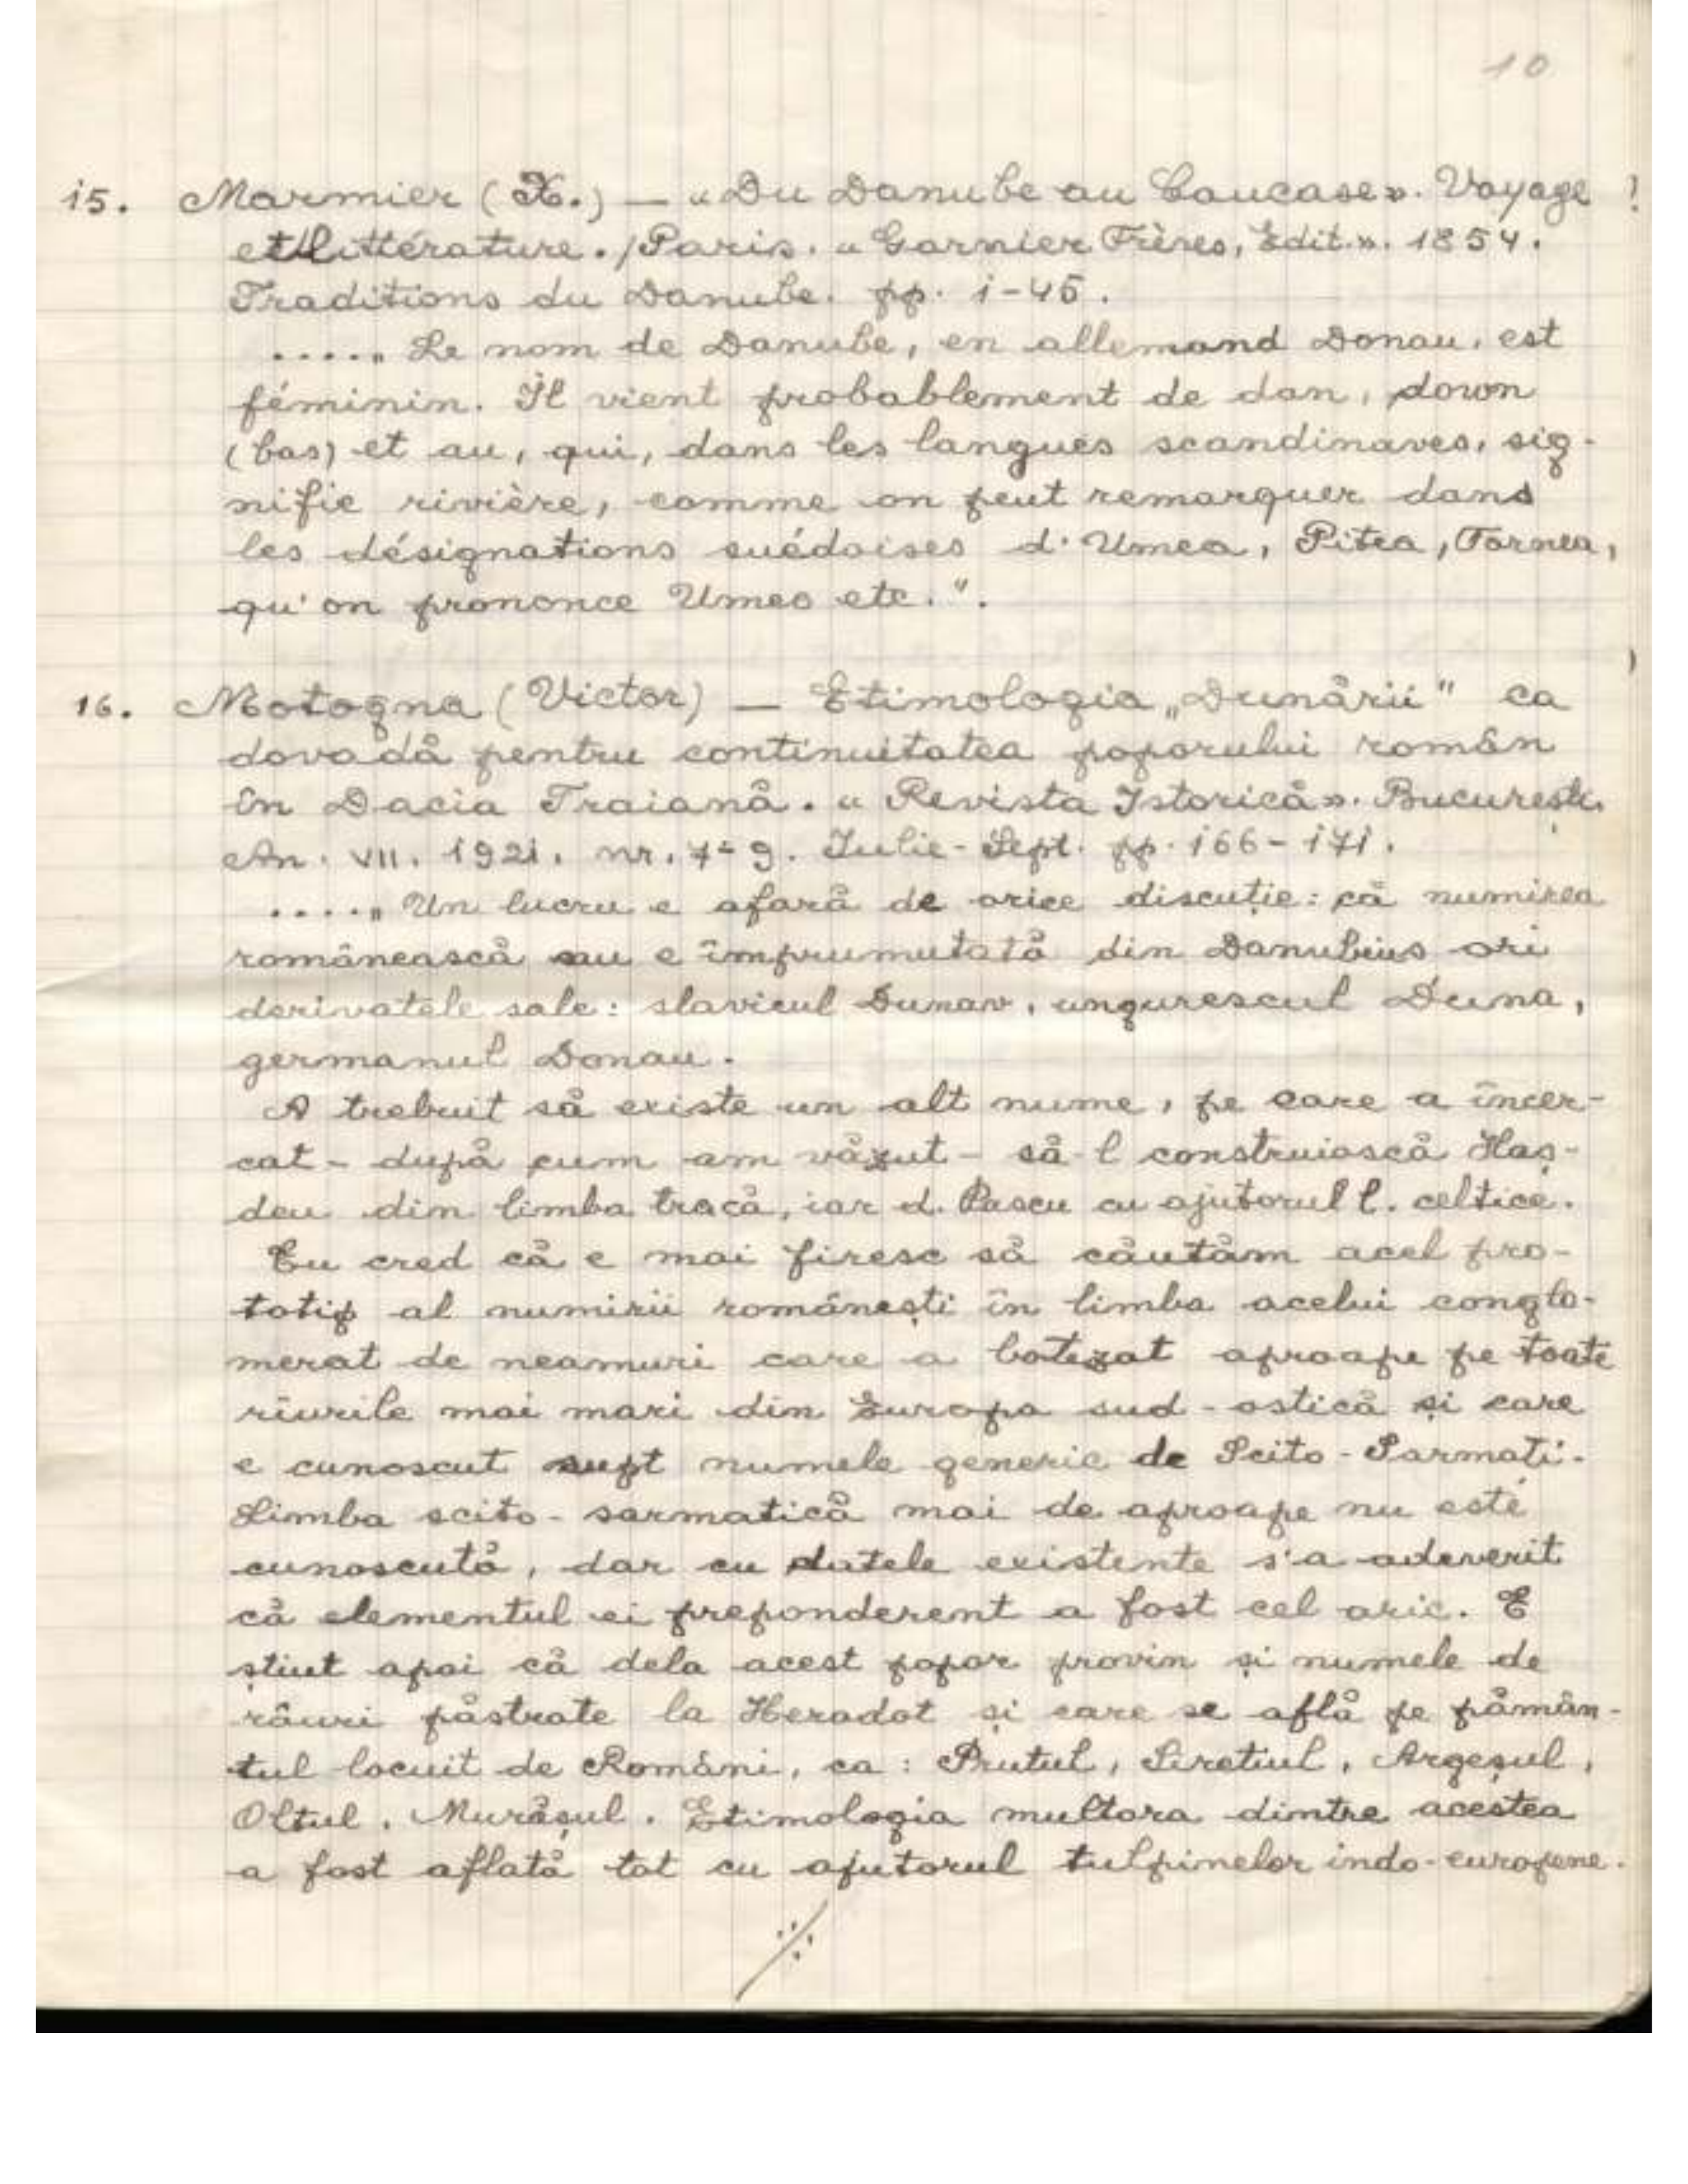 10
15. Marmier (X.) — «Du Danube au Caucase». Voyage
et littérature. / Paris. «Garnier Frères, Edit.». 1854.
Traditions du Danube. pp. 1-45.
....„ Le nom de Danube, en allemand Donau, est
féminin. Il vient probablement de dan, down
(bas) et au, qui, dans les langues scandinaves, sig-
nifie rivière, comme on peut remarquer dans
les désignations suédoises d'Umea, Pitea, Tornea,
qu'on prononce Umeo etc.".
16. Motogna (Victor) — Etimologia „Dunării" ca
dovadă pentru continuitatea poporului român
în Dacia Traiană. «Revista Istorică». București.
An. VII. 1921. nr. 7-9. Iulie-Sept. pp. 166-171.
....„ Un lucru e afară de orice discuție: că numirea
românească nu e împrumutată din Danubius ori
derivatele sale: slavicul Dunav, ungurescul Duna,
germanul Donau.
A trebuit să existe un alt nume, pe care a încer-
cat - după cum am văzut - să-l construiască Haș-
deu din limba tracă, iar d. Pascu cu ajutorul l. celtice.
Eu cred că e mai firesc să căutăm acel pro-
totip al numirii românești în limba acelui conglo-
merat de neamuri care a botezat aproape pe toate
rîurile mai mari din Europa sud-ostică și care
e cunoscut supt numele generic de Scito-Sarmați.
Limba scito-sarmatică mai de aproape nu este
cunoscută, dar cu datele existente s'a adeverit
că elementul ei preponderent a fost cel aric. E
știut apoi că dela acest popor provin și numele de
râuri păstrate la Herodot și care se află pe pămân-
tul locuit de Români, ca: Prutul, Siretiul, Argeșul,
Oltul, Murășul. Etimologia multora dintre acestea
a fost aflată tot cu ajutorul tulpinelor indo-europene.